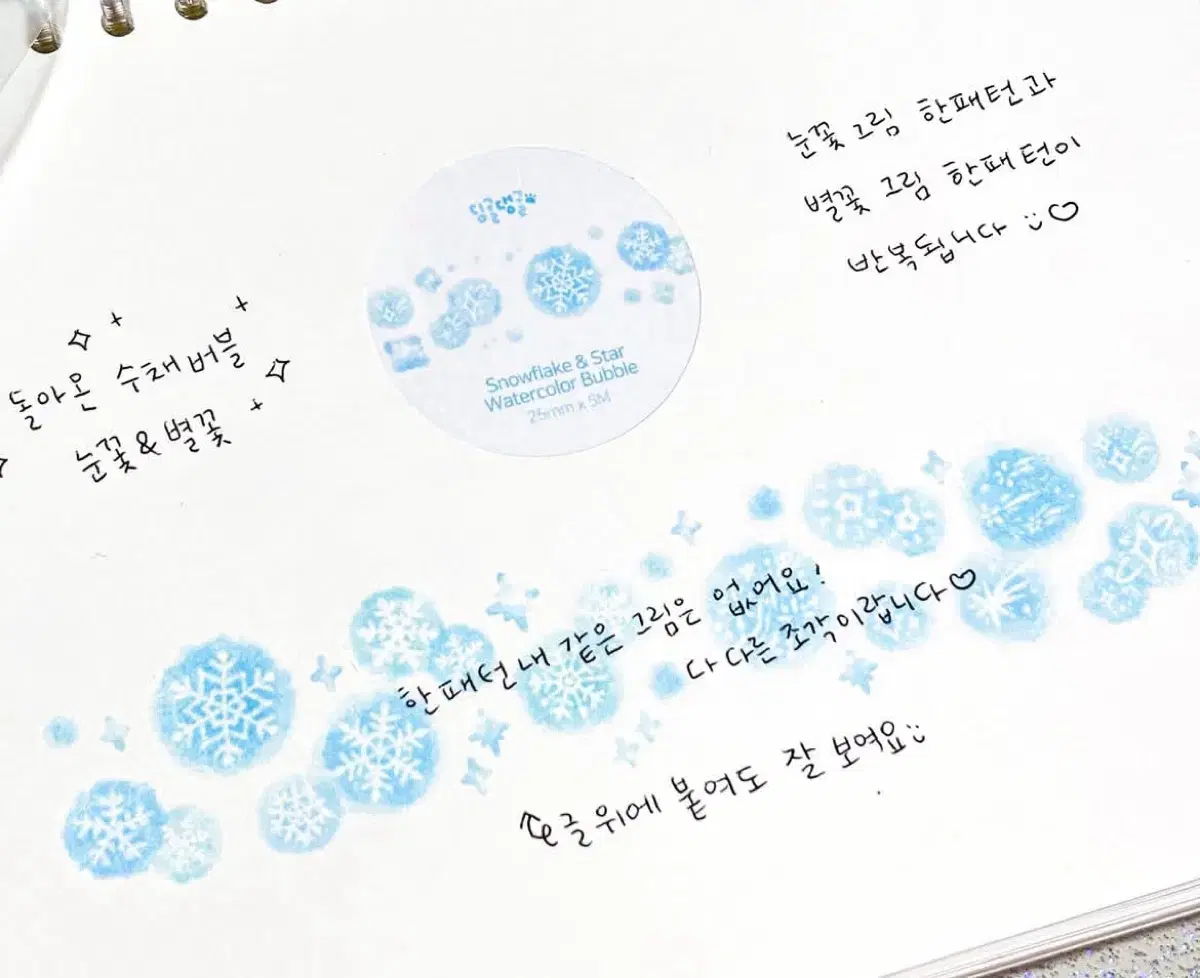 눈꽃 그림 한패턴과
별꽃 그림 한패턴이
반복됩니다
딩굴댕굴
Snowflake & Star
Watercolor Bubble
25mm x 5M
돌아온 수채버블
눈꽃&별꽃
한패턴내 같은 그림은 없어요!
다 다른 조각이랍니다
글위에 붙여도 잘 보여요